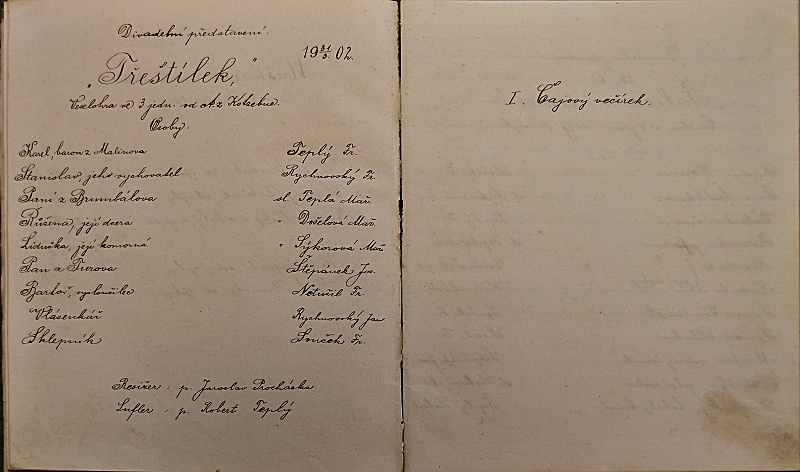 Divadelní představení:
19 31/3. 02.
"Třeštílek,"
Veselohra ve 3 jedn. od A. z Kotzebue.
Osoby:
Karel, baron z Malinova Teplý Fr.
Stanislav, jeho vychovatel Rychnovský Fr.
Paní z Brumbálova sl. Teplá Mař.
Růžena, její dcera " Dršelová Mař.
Liduška, její komorná " Sýkorová Mař.
Pan z Turova Štěpánek Jos.
Bartoš, vysloužilec Netušil Fr.
Vlásenkář Rychnovský Jan
Sklepník Souček Fr.
Resižér: p. Jaroslav Procháska
Sufler: p. Robert Teplý
I. Čajový večírek.